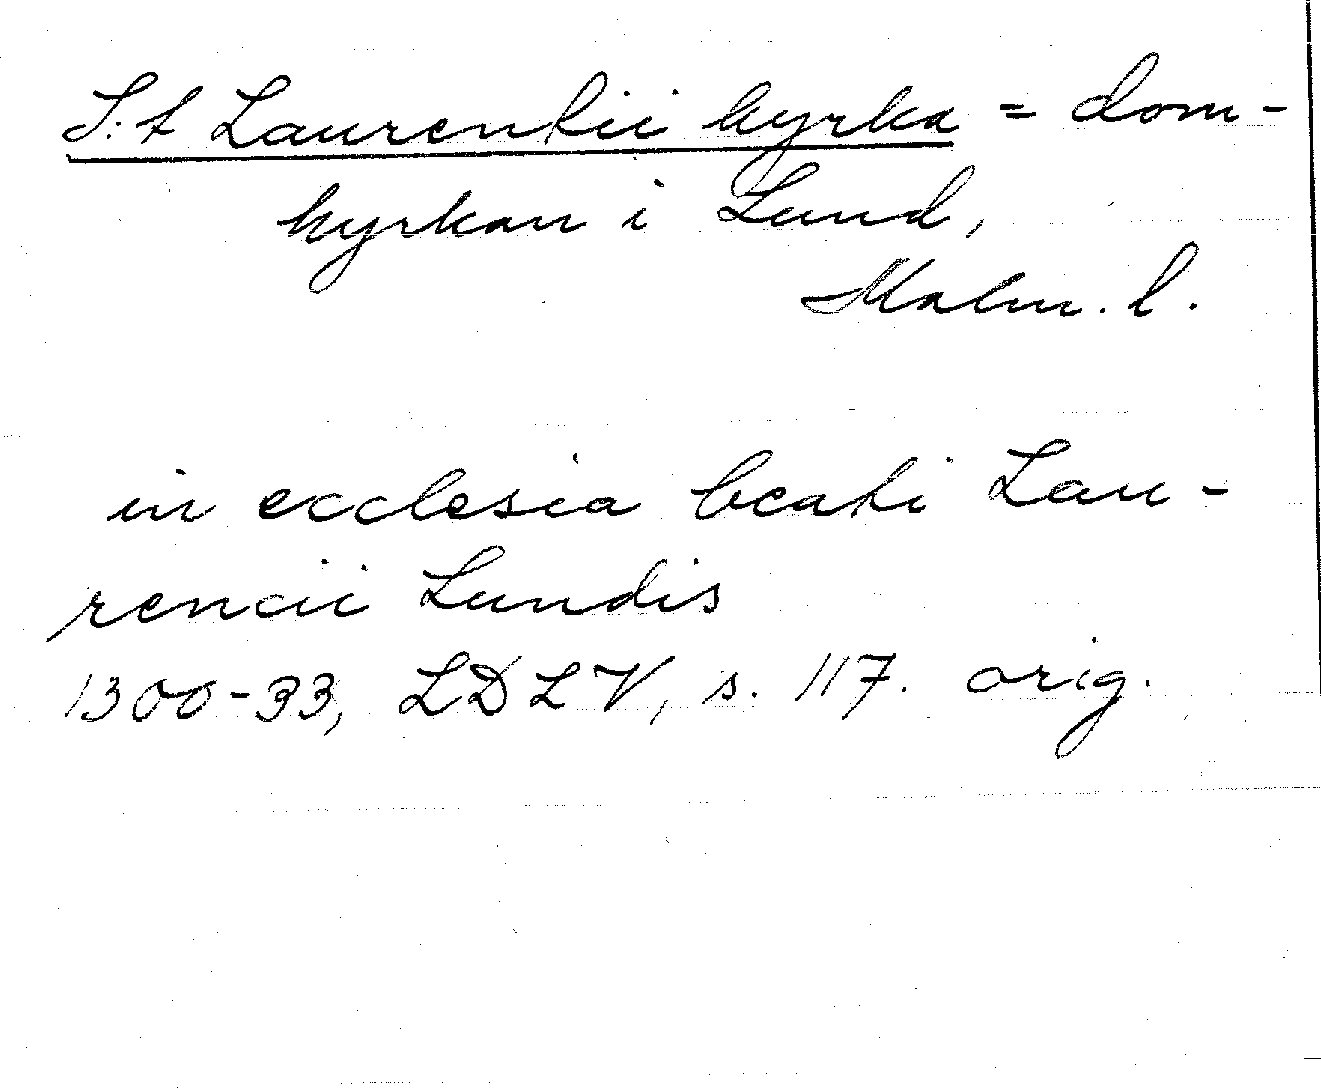 S:t Laurentii kyrka = dom-
kyrkan i Lund,
Malm. l.
in ecclesia beati Lau-
rencii Lundis
1300-33, LDLV, s. 117. orig.